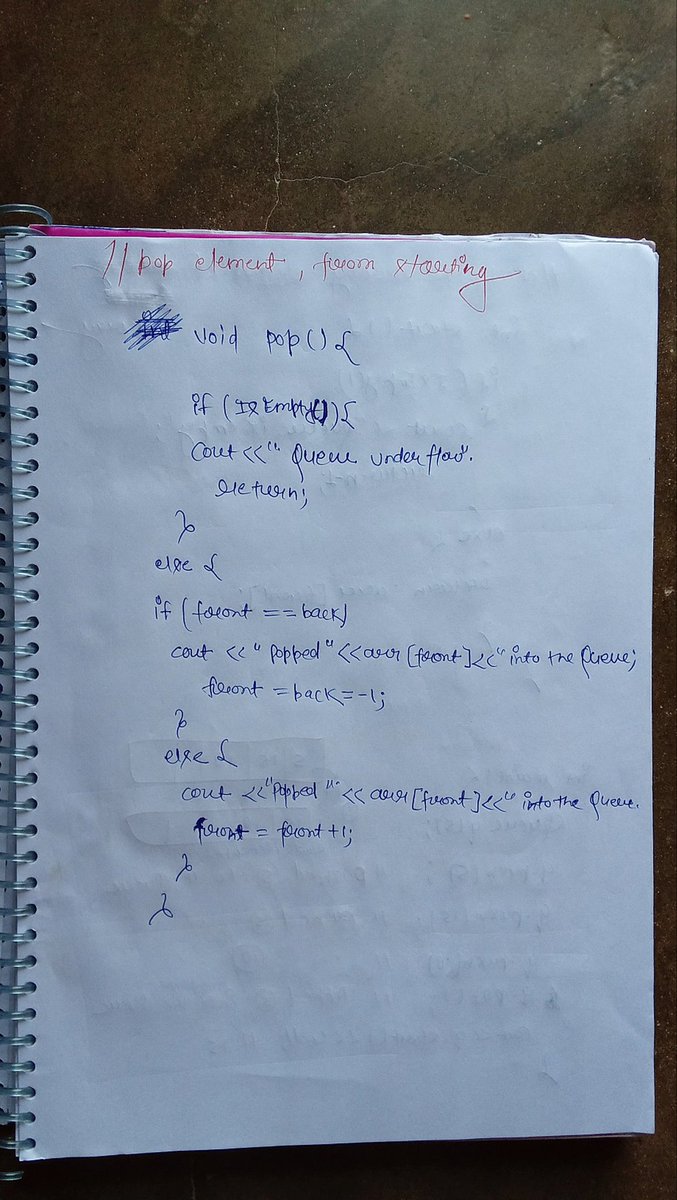 // pop element, from starting
void pop() {
if (IsEmpty()) {
cout <<" Queue underflow".
return;
}
else {
if (front == back)
cout <<" Popped "<<arr[front]<<" into the Queue;
front = back = -1;
}
else {
cout <<"Popped "<<arr[front]<<" into the Queue.
front = front +1;
}
}